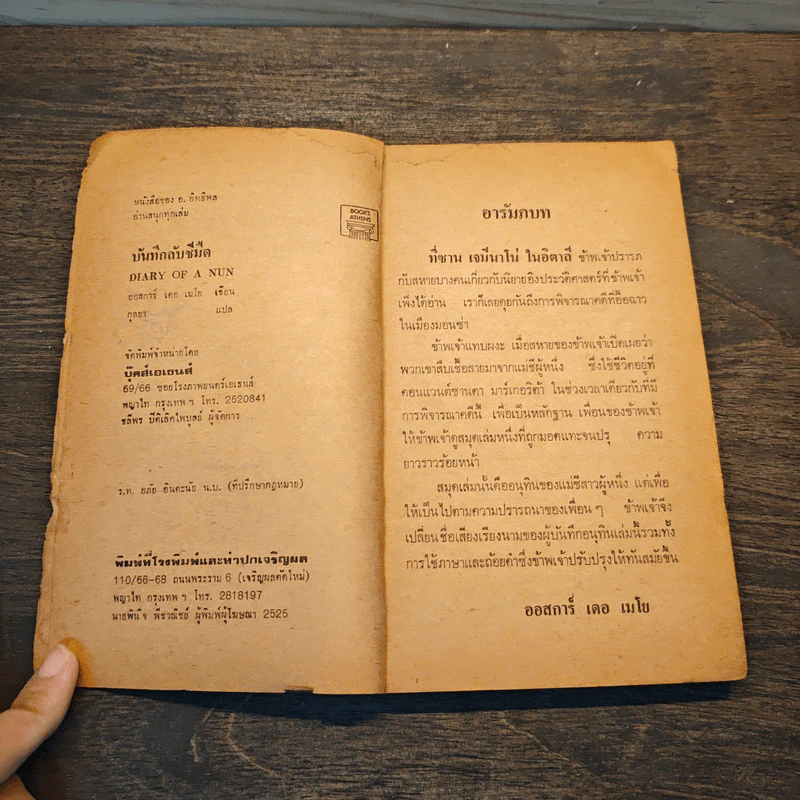 หนังสือของ อ. อิทธิพล
อ่านสนุกทุกเล่ม
BOOKS
ATHENS
บันทึกลับชีมืด
DIARY OF A NUN
ออสการ์ เดอ เมโย เขียน
กุลยา แปล
จัดพิมพ์จำหน่ายโดย
บุ๊คส์เอเธนส์
69/66 ซอยโรงภาพยนตร์เอเธนส์
พญาไท กรุงเทพ ฯ โทร. 2520841
ชลีพร ปีติเลิศไพบูลย์ ผู้จัดการ
ร.ท. อภัย อินตะนัย น.บ. (ที่ปรึกษากฎหมาย)
พิมพ์ที่โรงพิมพ์และทำปกเจริญผล
110/66-68 ถนนพระราม 6 (เจริญผลตัดใหม่)
พญาไท กรุงเทพ ฯ โทร. 2818197
นายพินิจ พืชวณิชย์ ผู้พิมพ์ผู้โฆษณา 2525
อารัมภบท
ที่ซาน เจมีนาโน่ ในอิตาลี ข้าพเจ้าปรารภ
กับสหายบางคนเกี่ยวกับนิยายอิงประวัติศาสตร์ที่ข้าพเจ้า
เพิ่งได้อ่าน เราก็เลยคุยกันถึงการพิจารณาคดีที่อื้อฉาว
ในเมืองมอนซ่า
ข้าพเจ้าแทบผงะ เมื่อสหายของข้าพเจ้าเปิดเผยว่า
พวกเขาสืบเชื้อสายมาจากแม่ชีผู้หนึ่ง ซึ่งใช้ชีวิตอยู่ที่
คอนแวนต์ซานตา มาร์เกอริต้า ในช่วงเวลาเดียวกับที่มี
การพิจารณาคดีนี้ เพื่อเป็นหลักฐาน เพื่อนของข้าพเจ้า
ให้ข้าพเจ้าดูสมุดเล่มหนึ่งที่ถูกมอดแทะจนปรุ ความ
ยาวราวร้อยหน้า
สมุดเล่มนั้นคืออนุทินของแม่ชีสาวผู้หนึ่ง แต่เพื่อ
ให้เป็นไปตามความปรารถนาของเพื่อน ๆ ข้าพเจ้าจึง
เปลี่ยนชื่อเสียงเรียงนามของผู้บันทึกอนุทินเล่มนี้รวมทั้ง
การใช้ภาษาและถ้อยคำซึ่งข้าพเจ้าปรับปรุงให้ทันสมัยขึ้น
ออสการ์ เดอ เมโย